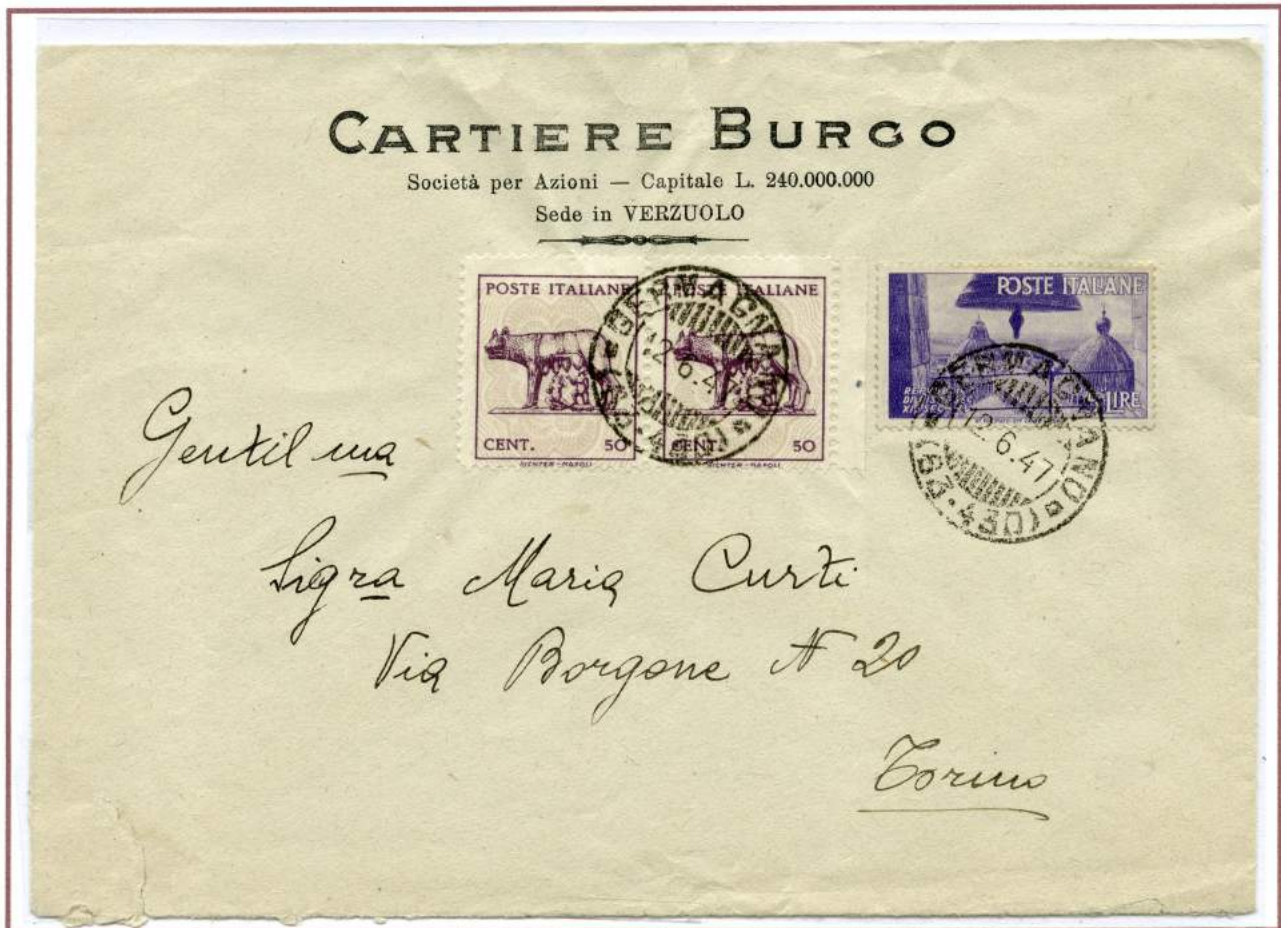 CARTIERE BURGO
Società per Azioni — Capitale L. 240.000.000
Sede in VERZUOLO
POSTE ITALIANE
CENT. 50
RICHTER-NAPOLI
POSTE ITALIANE
CENT. 50
RICHTER-NAPOLI
GERMAGNANO
12.6.47
POSTE ITALIANE
LIRE
GERMAGNANO
12.6.47
Gentil ma
Sigra Maria Curti
Via Borgone N 20
Torino